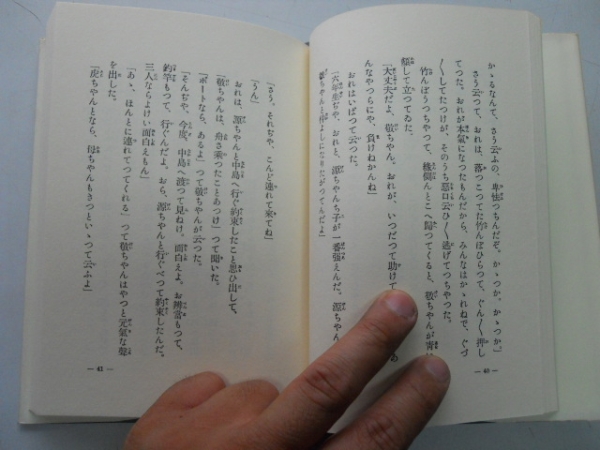 かゝるなんて、さう云ふの、卑怯つちんだぞ。かゝつか、かゝつか。」
さう云つて、おれは、落つこつてた竹んぼひらつて、ぐん〳〵押し
てつた。おれが本氣になつたもんだから、みんなはかゝれねで、ぐづ
〳〵してたつけが、そのうち惡口云ひ〳〵逃げてつちやつた。
竹んぼうつちやつて、機側んとこへ歸つてくると、敬ちやんが靑い
顏して立つてゐた。
「大丈夫だよ、敬ちやん。おれが、いつだつて助けて
んなやつらにや、負けねかんね」
おれはいばつて云つた。
「六年生ぢや、おれと、源ちやんち子が一番强えんだ。源ちやん
ちやんと仲よしになりたがつてんだよ」
— 40 —
「さう。それぢや、こんど連れて來てね」
「うん」
おれは、源ちやんと中島へ行ぐ約束したこと思ひ出して、
「敬ちやんは、舟さ乘つたことあつけ」って聞いた。
「ボートなら、あるよ」つて敬ちやんが云つた。
「そんぢや、今度、中島へ渡つて見ねけ。面白えよ。お辨當もつて、
釣竿もつて、行ぐんだよ。おら、源ちやんと行ぐべつて約束したんだ。
三人ならよけい面白えもん」
「あゝ、ほんとに連れてつてくれる」つて敬ちやんはやつと元氣な聲
を出した。
「虎ちやんとなら、母ちやんもきつといゝつて云ふよ」
— 41 —